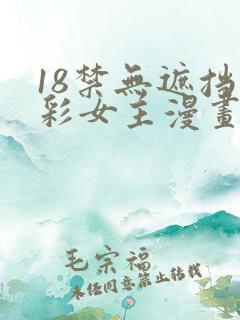 18禁無遮挡
彩女主漫畫
毛宗福
未任同意禁止转载